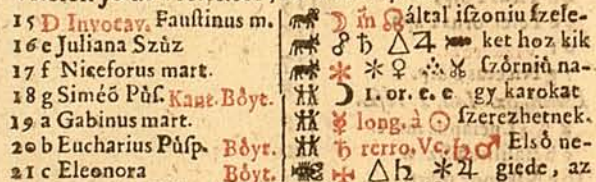 15 D Invocav. Fauſtinus m. ☽ in ☊ által iſzoniu ſzele-
16 e Juliana Szůz ☍ ♄ △ ♃ ket hoz kik
17 f Niceforus mart. ✶ ✶ ♀ ſzôrniů na-
18 g Siméõ Půſ. Kant. Bôyt. ☽ 1. or. e. e gy karokat
19 a Gabinus mart. ☿ long. à ☉ ſzerezhetnek.
20 b Eucharius Půſp. Bôyt. ♄ retro. Vc. ♄ ♂ Elsô ne-
21 c Eleonora Bôyt. △ ♄ ✶ ♃ giede, az